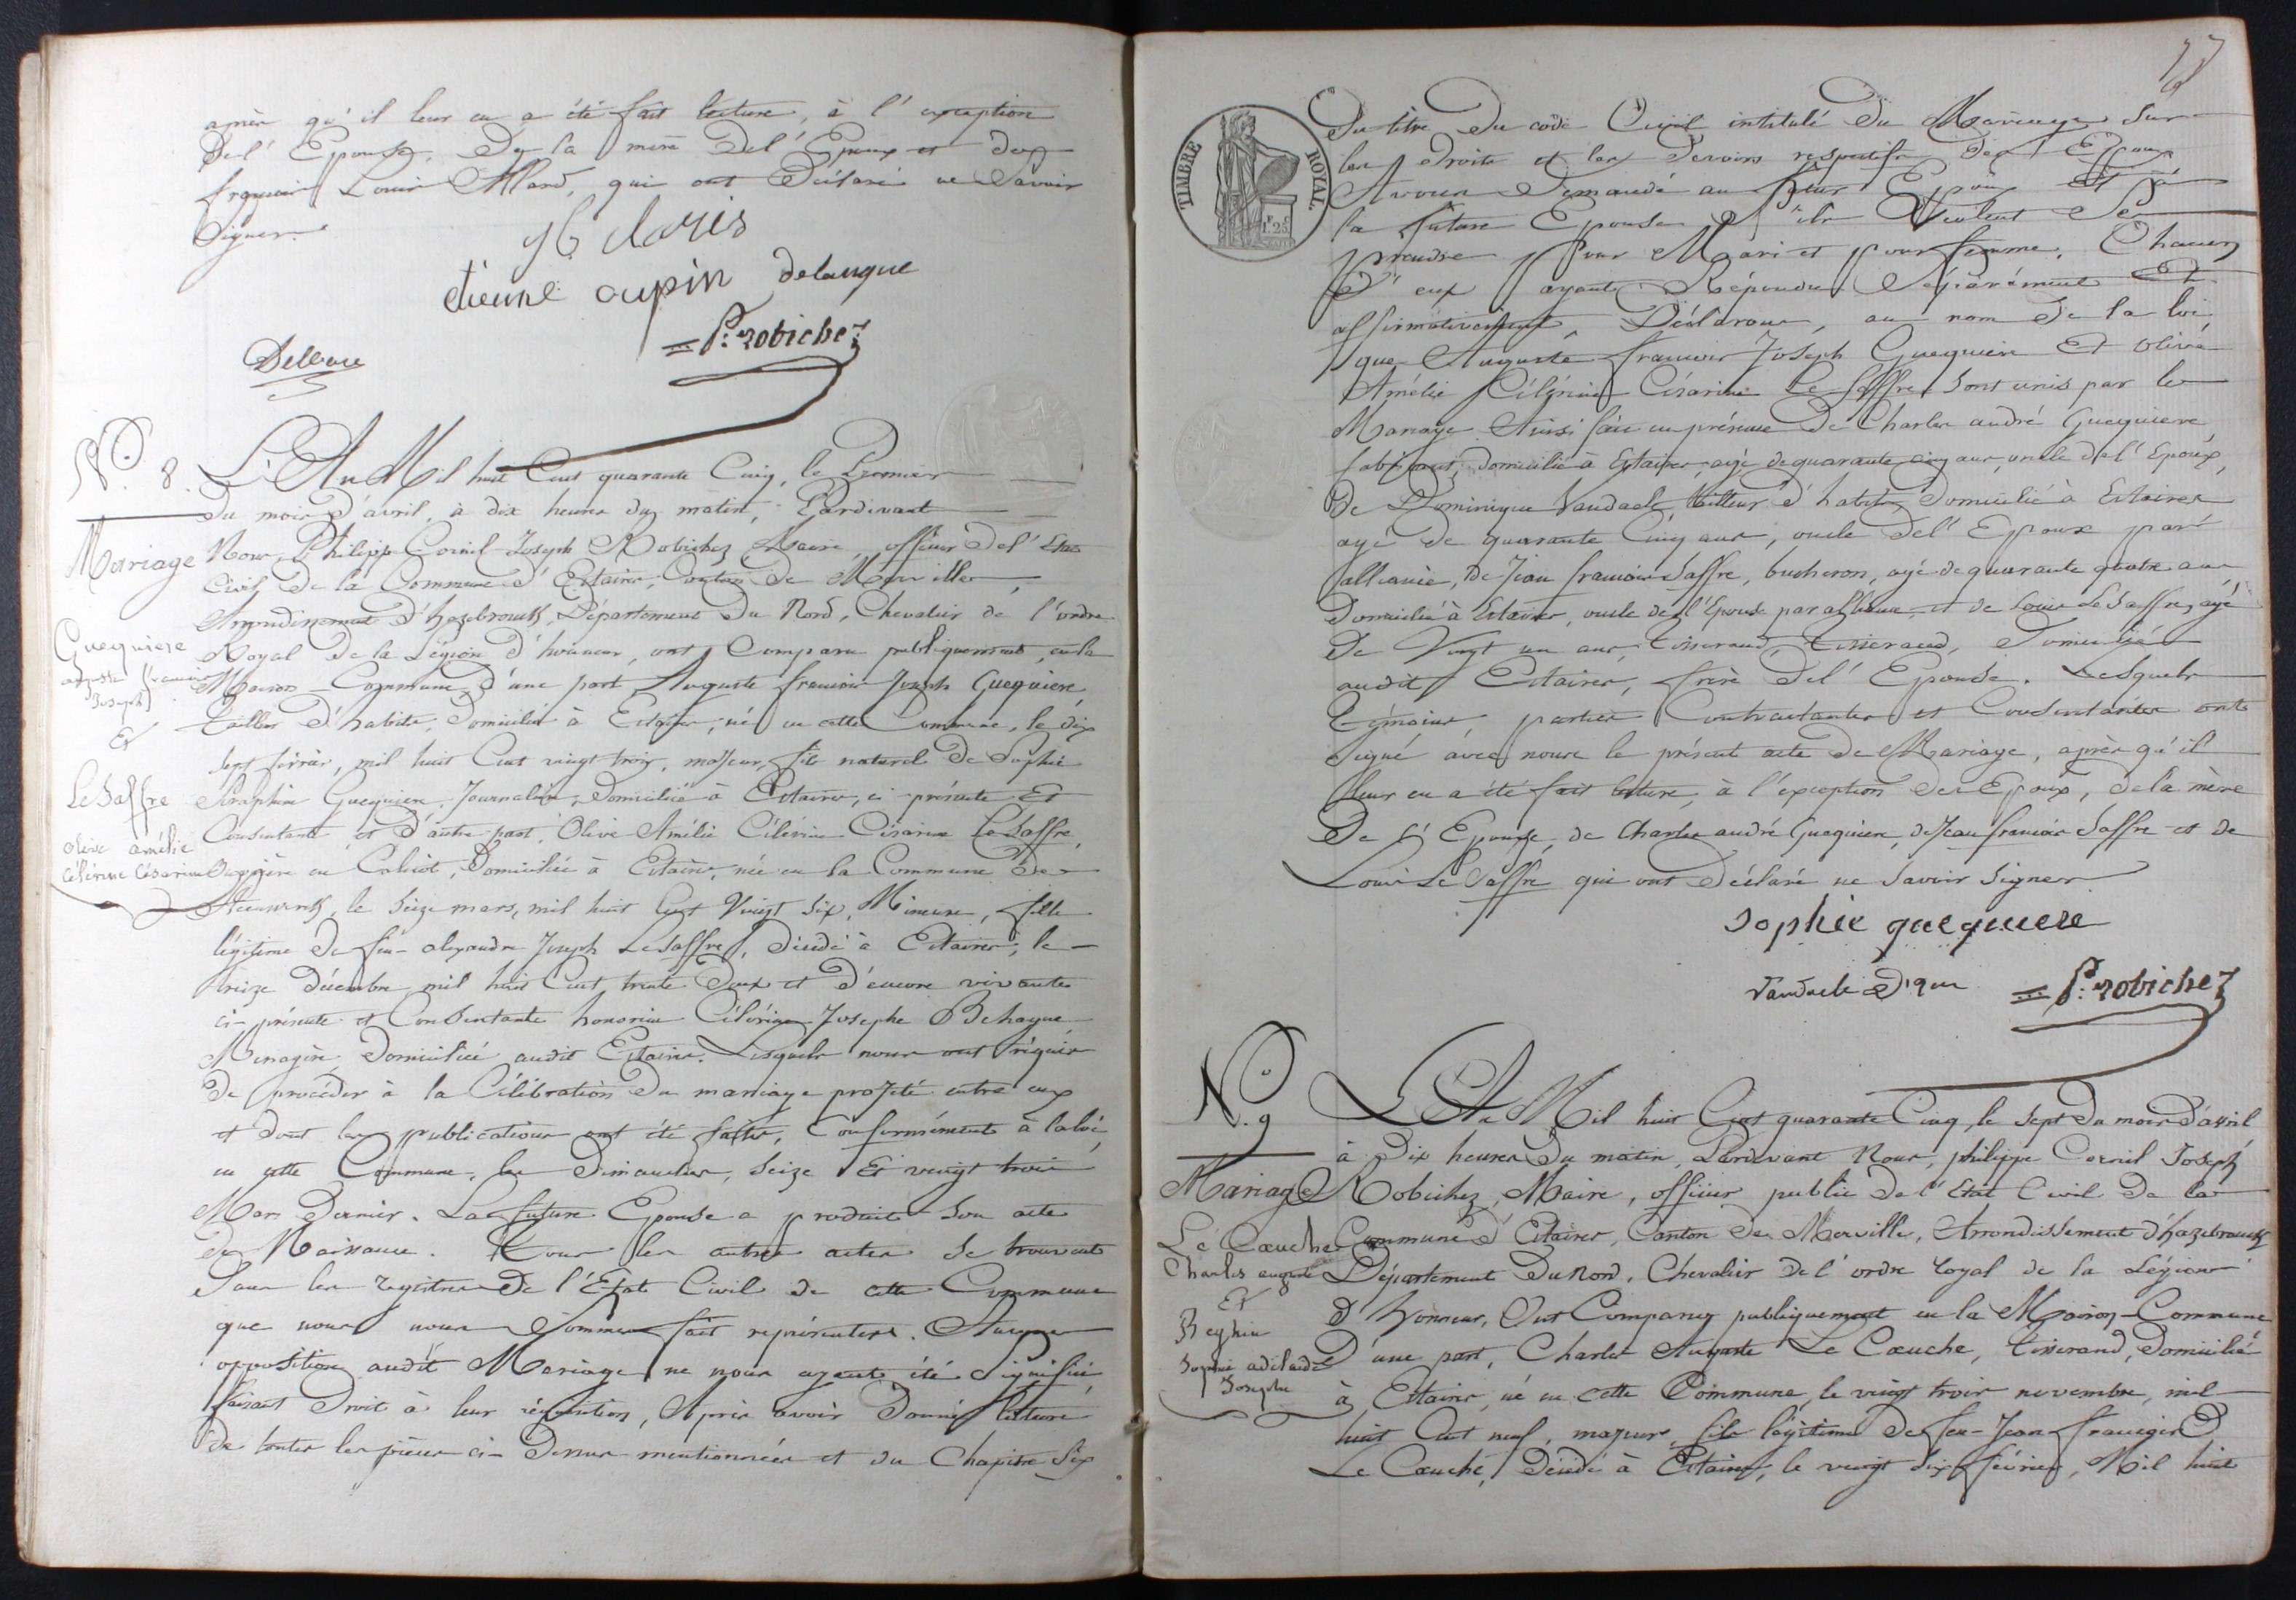 après qu'il leur en a été fait lecture, à l'exception
De l'Epouse, De la mère Del'Epoux et de
françois Louis Allard, qui ont Déclaré ne Savoir
Signer.
etienne cupin delangue
= P. robichez
N.º 8.
Mariage
Guequiere
auguste françois
Joseph
Et
LeSaffre
olive amélie
Célérine Césarine
L'An Mil huit Cent quarante Cinq, le Premier
Du mois d'avril, à dix heures du matin, Pardevant
Nous, Philippe Cornil Joseph Robichez Maire officier del'Etat
Civil de la Commune d'Estaires, Canton de Merville,
Arrondissement d'hazebrouck, Département du Nord, Chevalier de l'ordre
Royal de la Légion d'honneur, ont Comparu publiquement, en la
Maison-Commune, d'une part Auguste françois Joseph Guequiere,
tailleur d'habits, Domicilié à Estaires, né en cette Commune, le dix
sept février, mil huit Cent vingt trois, majeur, fils naturel de Sophie
Séraphine Guequiere, Journalière, Domiciliée à Estaires, ci-présente Et
Consentante, et d'autre part, Olive Amélie Célérine Césarine LeSaffre,
en Calicot, Domiciliée à Estaires, née en la Commune de
Steenwerck, le Seize mars, mil huit Cent Vingt Six, Mineure, fille
légitime De feu alexandre Joseph LeSaffre, décédé à Estaires, le
treize décembre mil huit Cent trente Deux et d'encore vivante
ci-présente et Consentante honorine Célérine Josephe Behague
Ménagère Domiciliée audit Estaires. Lesquels nous ont réquis
de procéder à la Célébration du mariage projeté entre eux
et dont les publications ont été faites, Conformément à la loi
en cette Commune, les Dimanches, Seize Et vingt trois
Mars Dernier. La future Epouse a produit Son acte
de Naissance. Tous les autres actes Se trouvent
Dans les registres De l'Etat Civil de cette Commune
que nous nous Sommes fait représenter. Aucune
opposition audit Mariage ne nous ayant été Signifiée
faisant Droit à leur réquisition, Après avoir Donné lecture
de toutes les pièces ci-Dessus mentionnées et du Chapitre Six
TIMBRE ROYAL
1F. 25c
Du titre Du code Civil intitulé Du Mariage Sur
les Droits et les Devoirs respectifs Des Epoux
Avons Demandé au futur Epoux Et à
la future Epouse S'ils Veulent Se
prendre pour Mari et pour femme, Chacun
D'eux ayant Répondu Séparément Et
affirmativement, Déclarons, au nom de la loi
que Auguste françois Joseph Guequiere Et Olive
Amélie Célérine Césarine LeSaffre Sont unis par le
Mariage Ainsi fait en présence de Charles andré Guequiere,
domicilié à Estaires, agé de quarante cinq ans, oncle del'Epoux,
De Dominique Vandaele, tailleur d'habits, Domicilié à Estaires
agé de quarante Cinq ans, oncle Del'Epoux par
alliance, De Jean françois Saffre, bucheron, agé de quarante quatre ans
Domicilié à Estaires, oncle de l'Epouse par alliance et de Louis LeSaffre, agé
De Vingt un ans, tisserand, tisserand, Domicilié
audit Estaires, frère Del'Epouse. Lesquels
témoins, parties Contractantes et Consentantes ont
Signé avec nous le présent acte de Mariage, après qu'il
leur en a été fait lecture, à l'exception Des Epoux, De la mère
De l'Epouse, de Charles andré Guequiere, de Jean françois Saffre et de
Louis LeSaffre qui ont Déclaré ne Savoir Signer.
Sophie guequiere
Vandaele Dique
= P. robichez
N.º 9
Mariage
Le Cœuche
Charles auguste
Et
Beghin
Sophie adelaide
Josephe
L'An Mil huit Cent quarante Cinq, le Sept Du mois d'avril
à Dix heures Du matin, Pardevant Nous, philippe Cornil Joseph
Robichez, Maire, officier public De l'Etat Civil De la
Commune d'Estaires, Canton de Merville, Arrondissement d'hazebrouck
Département Du Nord, Chevalier De l'ordre royal de la Légion
d'honneur, Ont Comparu publiquement en la Maison-Commune
D'une part, Charles Auguste Le Cœuche, tisserand, Domicilié
à Estaires, né en cette Commune, le vingt trois novembre, mil
huit Cent neuf, majeur, fils légitime De feu Jean françois
Le Cœuche, Décédé à Estaires, le vingt Six février, Mil huit